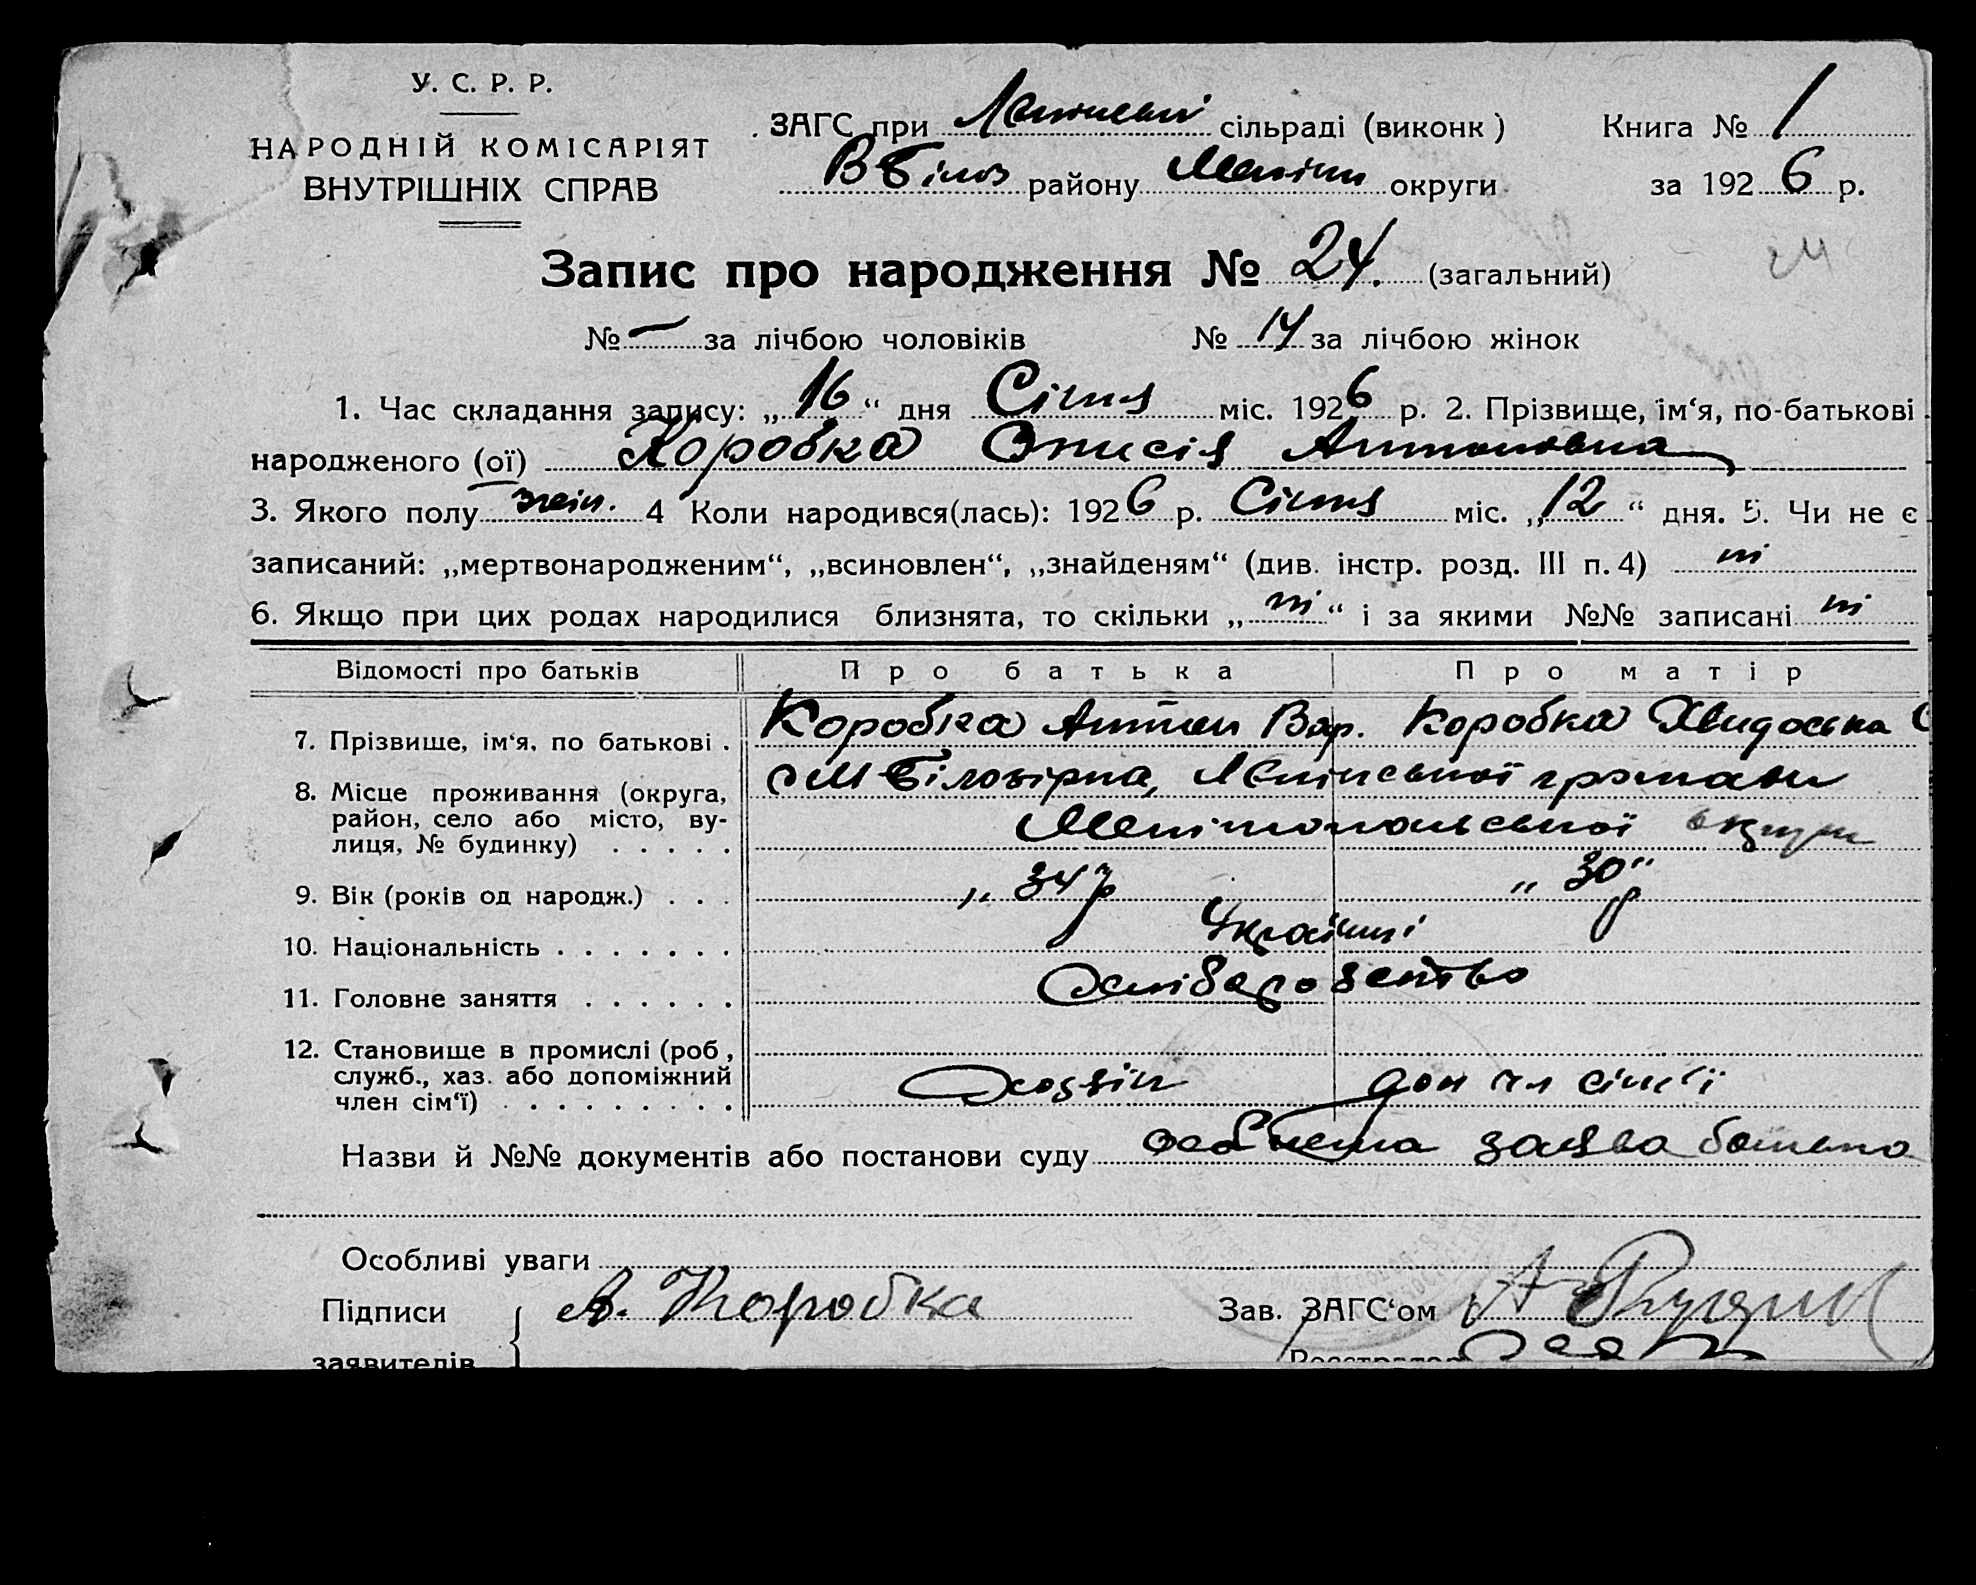 У. С. Р. Р.
НАРОДНІЙ КОМІСАРІЯТ
ВНУТРІШНІХ СПРАВ
ЗАГС при сільраді (виконк)
В Білоз району Меліт округи
Книга № 1
за 1926 р.
Запис про народження № 24. (загальний)
№ — за лічбою чоловіків № 14 за лічбою жінок
1. Час складання запису: „16“ дня Січня міс. 1926 р. 2. Прізвище, ім‘я, по-батькові
народженого (ої) Коробка Антоновна
3. Якого полу жін. 4 Коли народився(лась): 1926 р. Січня міс. „12“ дня. 5. Чи не є
записаний: „мертвонародженим“, „всиновлен“, „знайденям“ (див. інстр. розд. III п. 4) ні
6. Якщо при цих родах народилися близнята, то скільки „ні“ і за якими №№ записані ні
Відомості про батьків Про батька Про матір
7. Прізвище, ім‘я, по батькові . Коробка Антон Вар. Коробка Хвидоська
8. Місце проживання (округа,
район, село або місто, ву-
лиця, № будинку) . . . . .
с М Білозірка, Ленінської громади
Мелітопольської округи
9. Вік (років од народж.) . . . „ 34 р „ 30 р“
10. Національність . . . . . . . Українці
11. Головне заняття . . . . . . хліборобство
12. Становище в промислі (роб,
служб., хаз. або допоміжний
член сім‘ї) . . . . . . . . .
Хозяін доп чл сім'ї
Назви й №№ документів або постанови суду особиста заява батька
Особливі уваги
Підписи
заявителів
А. Коробка
Зав. ЗАГС‘ом
Реєстратор